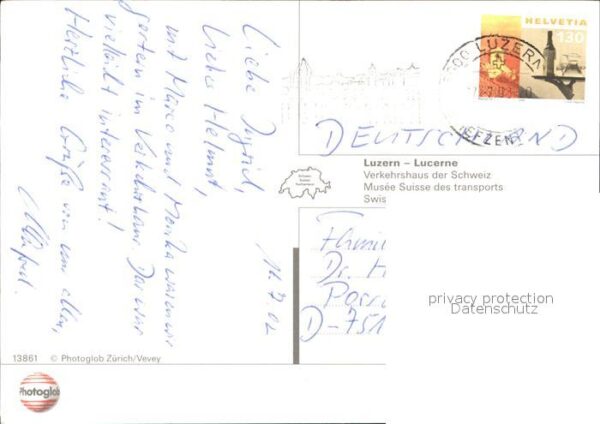 16.7.02
Liebe Ingrid,
lieber Helmut,
mit Maxe und Monika waren wir
gestern im Verkehrshaus. Das war
vielleicht interessant!
Herzliche Grüße von uns allen,
HELVETIA
130
LUZERN
DEUTSCHLAND
Luzern – Lucerne
Verkehrshaus der Schweiz
Musée Suisse des transports
Swis
Dr. H
D-751
privacy protection
Datenschutz
13861 © Photoglob Zürich/Vevey
Photoglob